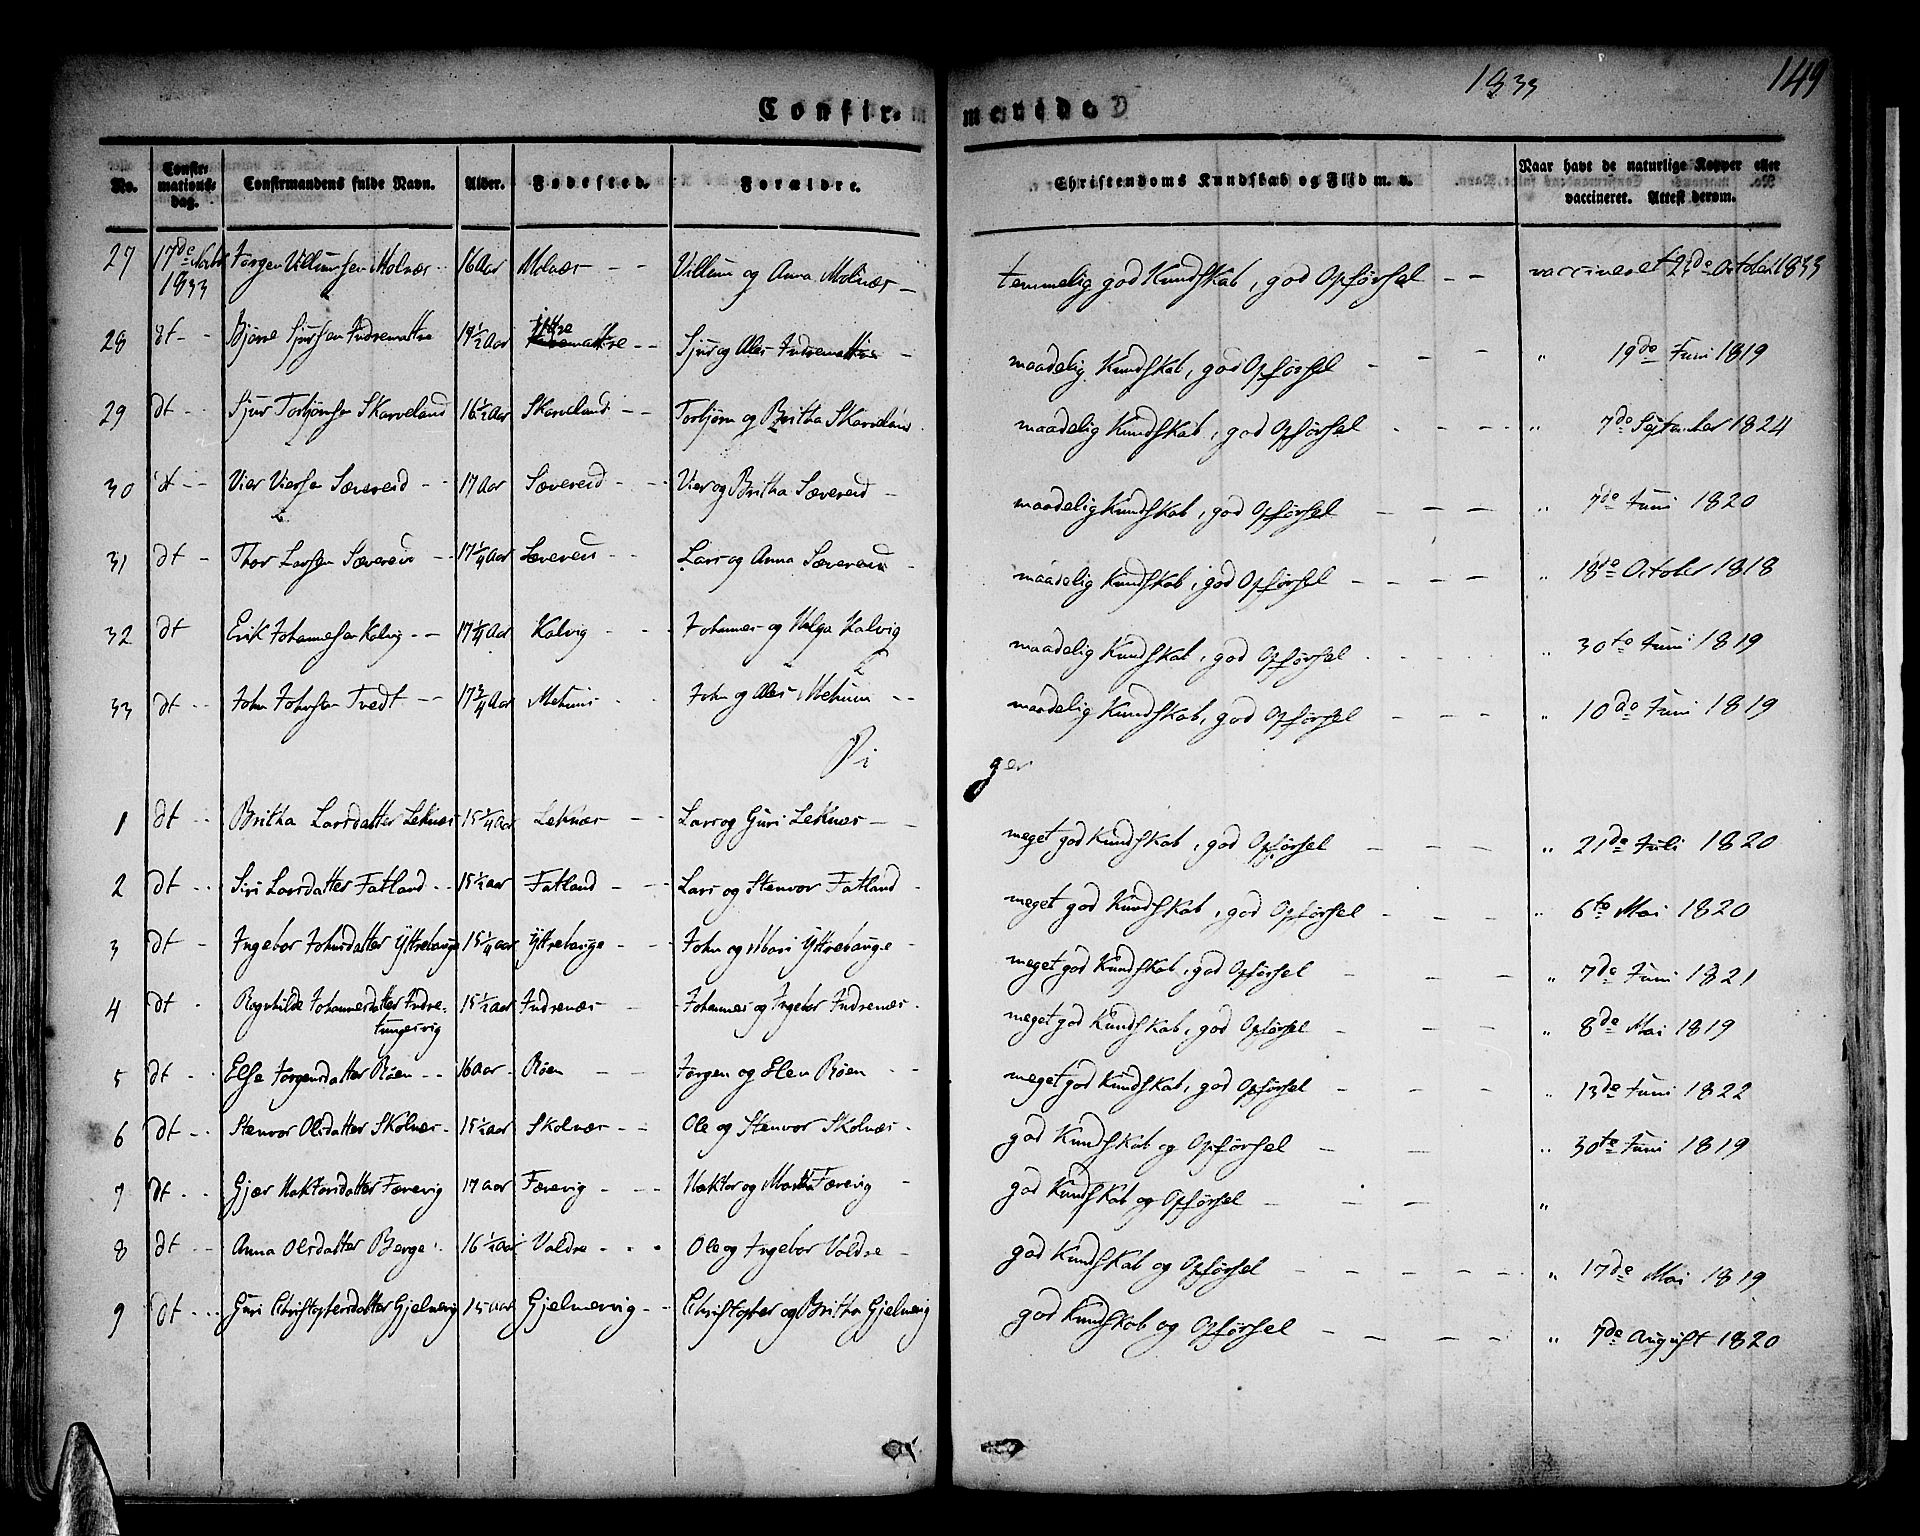 1833
149
Confirmerede
No. Confirmations-dag. Confirmandens fulde Navn. Alder. Fødested. Forældre. Christendoms Kundskab og Flid m. v. Naar havt de naturlige Kopper eller vaccineret. Attest derom.
27 17de 1833 Jørgen Villumsen Molnæs 16 Aar Molnæs - - Villum og Anna Molnæs - temmelig god Kundskab, god Opførsel - - vaccineret 23de October 1833
28 dt - Bjørne Sjursen Indremattre 19 1/2 Aar Ittre mattre - - Sjur og Ales Indremattre - maadelig Kundskab, god Opførsel - - - " 19de Juni 1819
29 dt - - Sjur Torbjørnsen Skarveland 16 1/2 Aar Skarveland - - Torbjørn og Britha Skarveland maadelig Kundskab, god Opførsel - - - " 7de September 1824
30 dt - - Vier Viersen Sævereid - - 17 Aar Sævereid - - Vier og Britha Sævereid - maadelig Kundskab, god Opførsel - - - " 7de Juni 1820
31 dt - Thor Larsen Sævereid - - 17 1/4 Aar Sævereid - - Lars og Anna Sævereid - maadelig Kundskab, god Opførsel - - - - " 18de October 1818
32 dt Erik Johannesen Kalvig - - 17 1/4 Aar Kalvig - - Johannes og Helga Kalvig maadelig Kundskab, god Opførsel - - - - " 30te Juni 1819
33 dt - - John Johnsen Tvedt - - 17 3/4 Aar - - John og Ales - - maadelig Kundskab, god Opførsel - - - " 10de Juni 1819
Piger
1 dt - - Britha Larsdatter Leknæs 15 1/4 Aar Leknæs - - Lars og Guri Leknæs - - meget god Kundskab, god Opførsel - - - - " 21de Juli 1820
2 dt - - Siri Larsdatter Fatland - - 15 1/2 aar Fatland - - Lars og Stenvor Fatland - meget god Kundskab, god Opførsel - - - " 6te Mai 1820
3 dt - Ingebor Johnsdatter Yttrebauge 15 1/4 aar Yttrebauge - - John og Mari Yttrebauge - meget god Kundskab, god Opførsel - - - " 7de Juni 1821
4 dt - Rognhilde Johannesdatter Indre-tungesvig 15 1/2 aar Indrenæs - Johannes og Ingebor Indrenæs - meget god Kundskab, god Opførsel - - - " 8de Mai 1819
5 dt - - Else Jørgensdatter Røen - - 16 aar - Røen - - Jørgen og Elen Røen - - meget god Kundskab, god Opførsel - - - " 13de Juni 1822
6 dt - - Stenvor Olsdatter Skolnæs - 15 1/2 aar Skolnæs - - Ole og Stenvor Skolnæs - god Kundskab og Opførsel - - " 30te Juni 1819
7 dt - - Gjær Haktorsdatter Færevig 17 aar Færevig - - - Haktor og Martha Færevig - god Kundskab og Opførsel - - - "
8 dt - - Anna Olsdatter Berge 16 1/2 aar Valdre - - - Ole og Ingebor Valdre - god Kundskab og Opførsel - - - - - " 17de Mai 1819
9 dt - - - Guri Christophersdatter Gjelmervig 15 aar Gjelmervig - - Christopher og Britha Gjelmervig god Kundskab og Opførsel - - - - " 7de August 1820